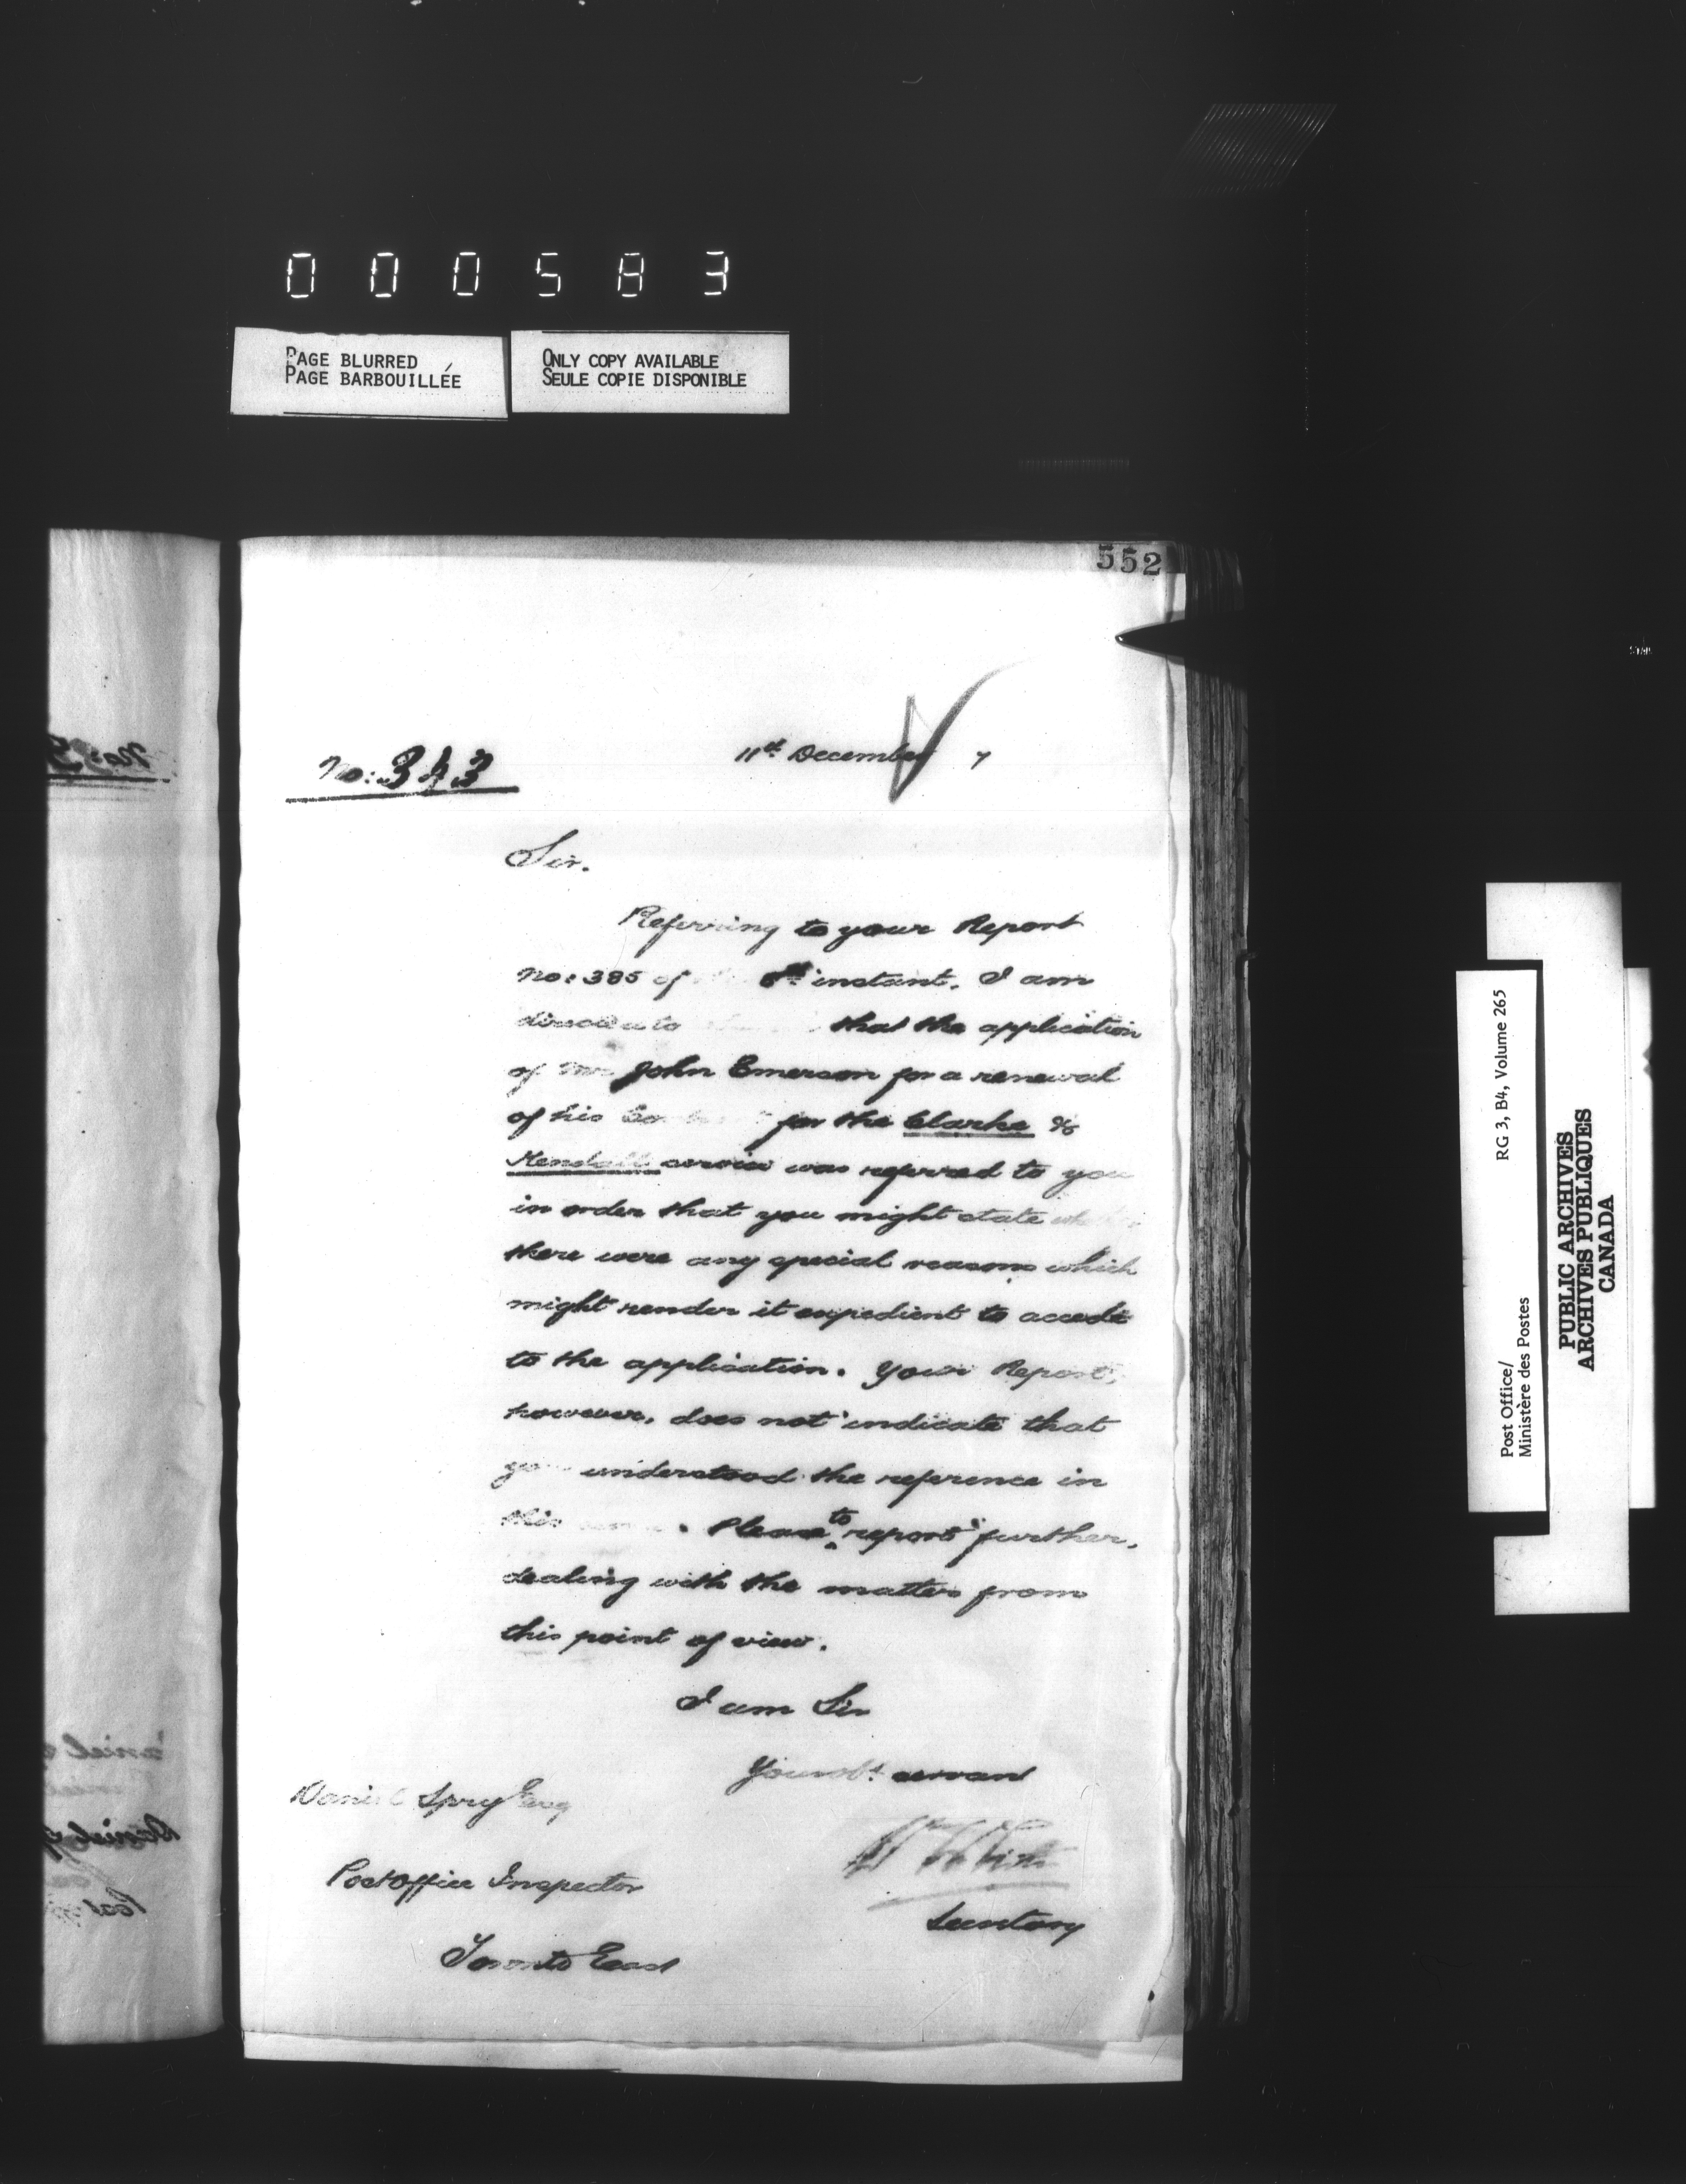 000583
PAGE BLURRED
PAGE BARBOUILLÉE
ONLY COPY AVAILABLE
SEULE COPIE DISPONIBLE
552
No: 343
11th December 7
Sir.
Referring to your Report
No: 385 of 8th instant. I am
directed to that the application
of Mr John Emerson for a renewal
of his for the Clarke &
Kendall service was referred to you
in order that you might state
there were any special reasons which
might render it expedient to accede
to the application. Your Report,
however, does not indicate that
you understood the reference in
this . Please to report further,
dealing with the matter from
this point of view.
I am Sir
Your obt servant
Daniel Spry Esq
Post Office Inspector
Secretary
Toronto East
RG 3, B4, Volume 265
Post Office/
Ministère des Postes
PUBLIC ARCHIVES
ARCHIVES PUBLIQUES
CANADA